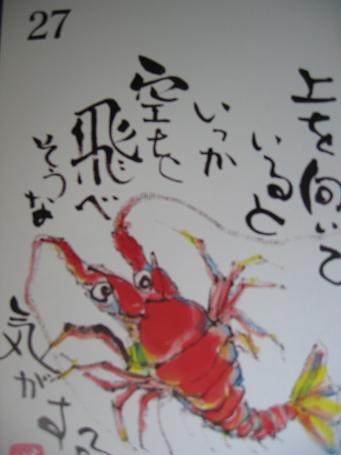 27
上を向いて
いると
いっか
空を
飛べ
そうな
気が
する